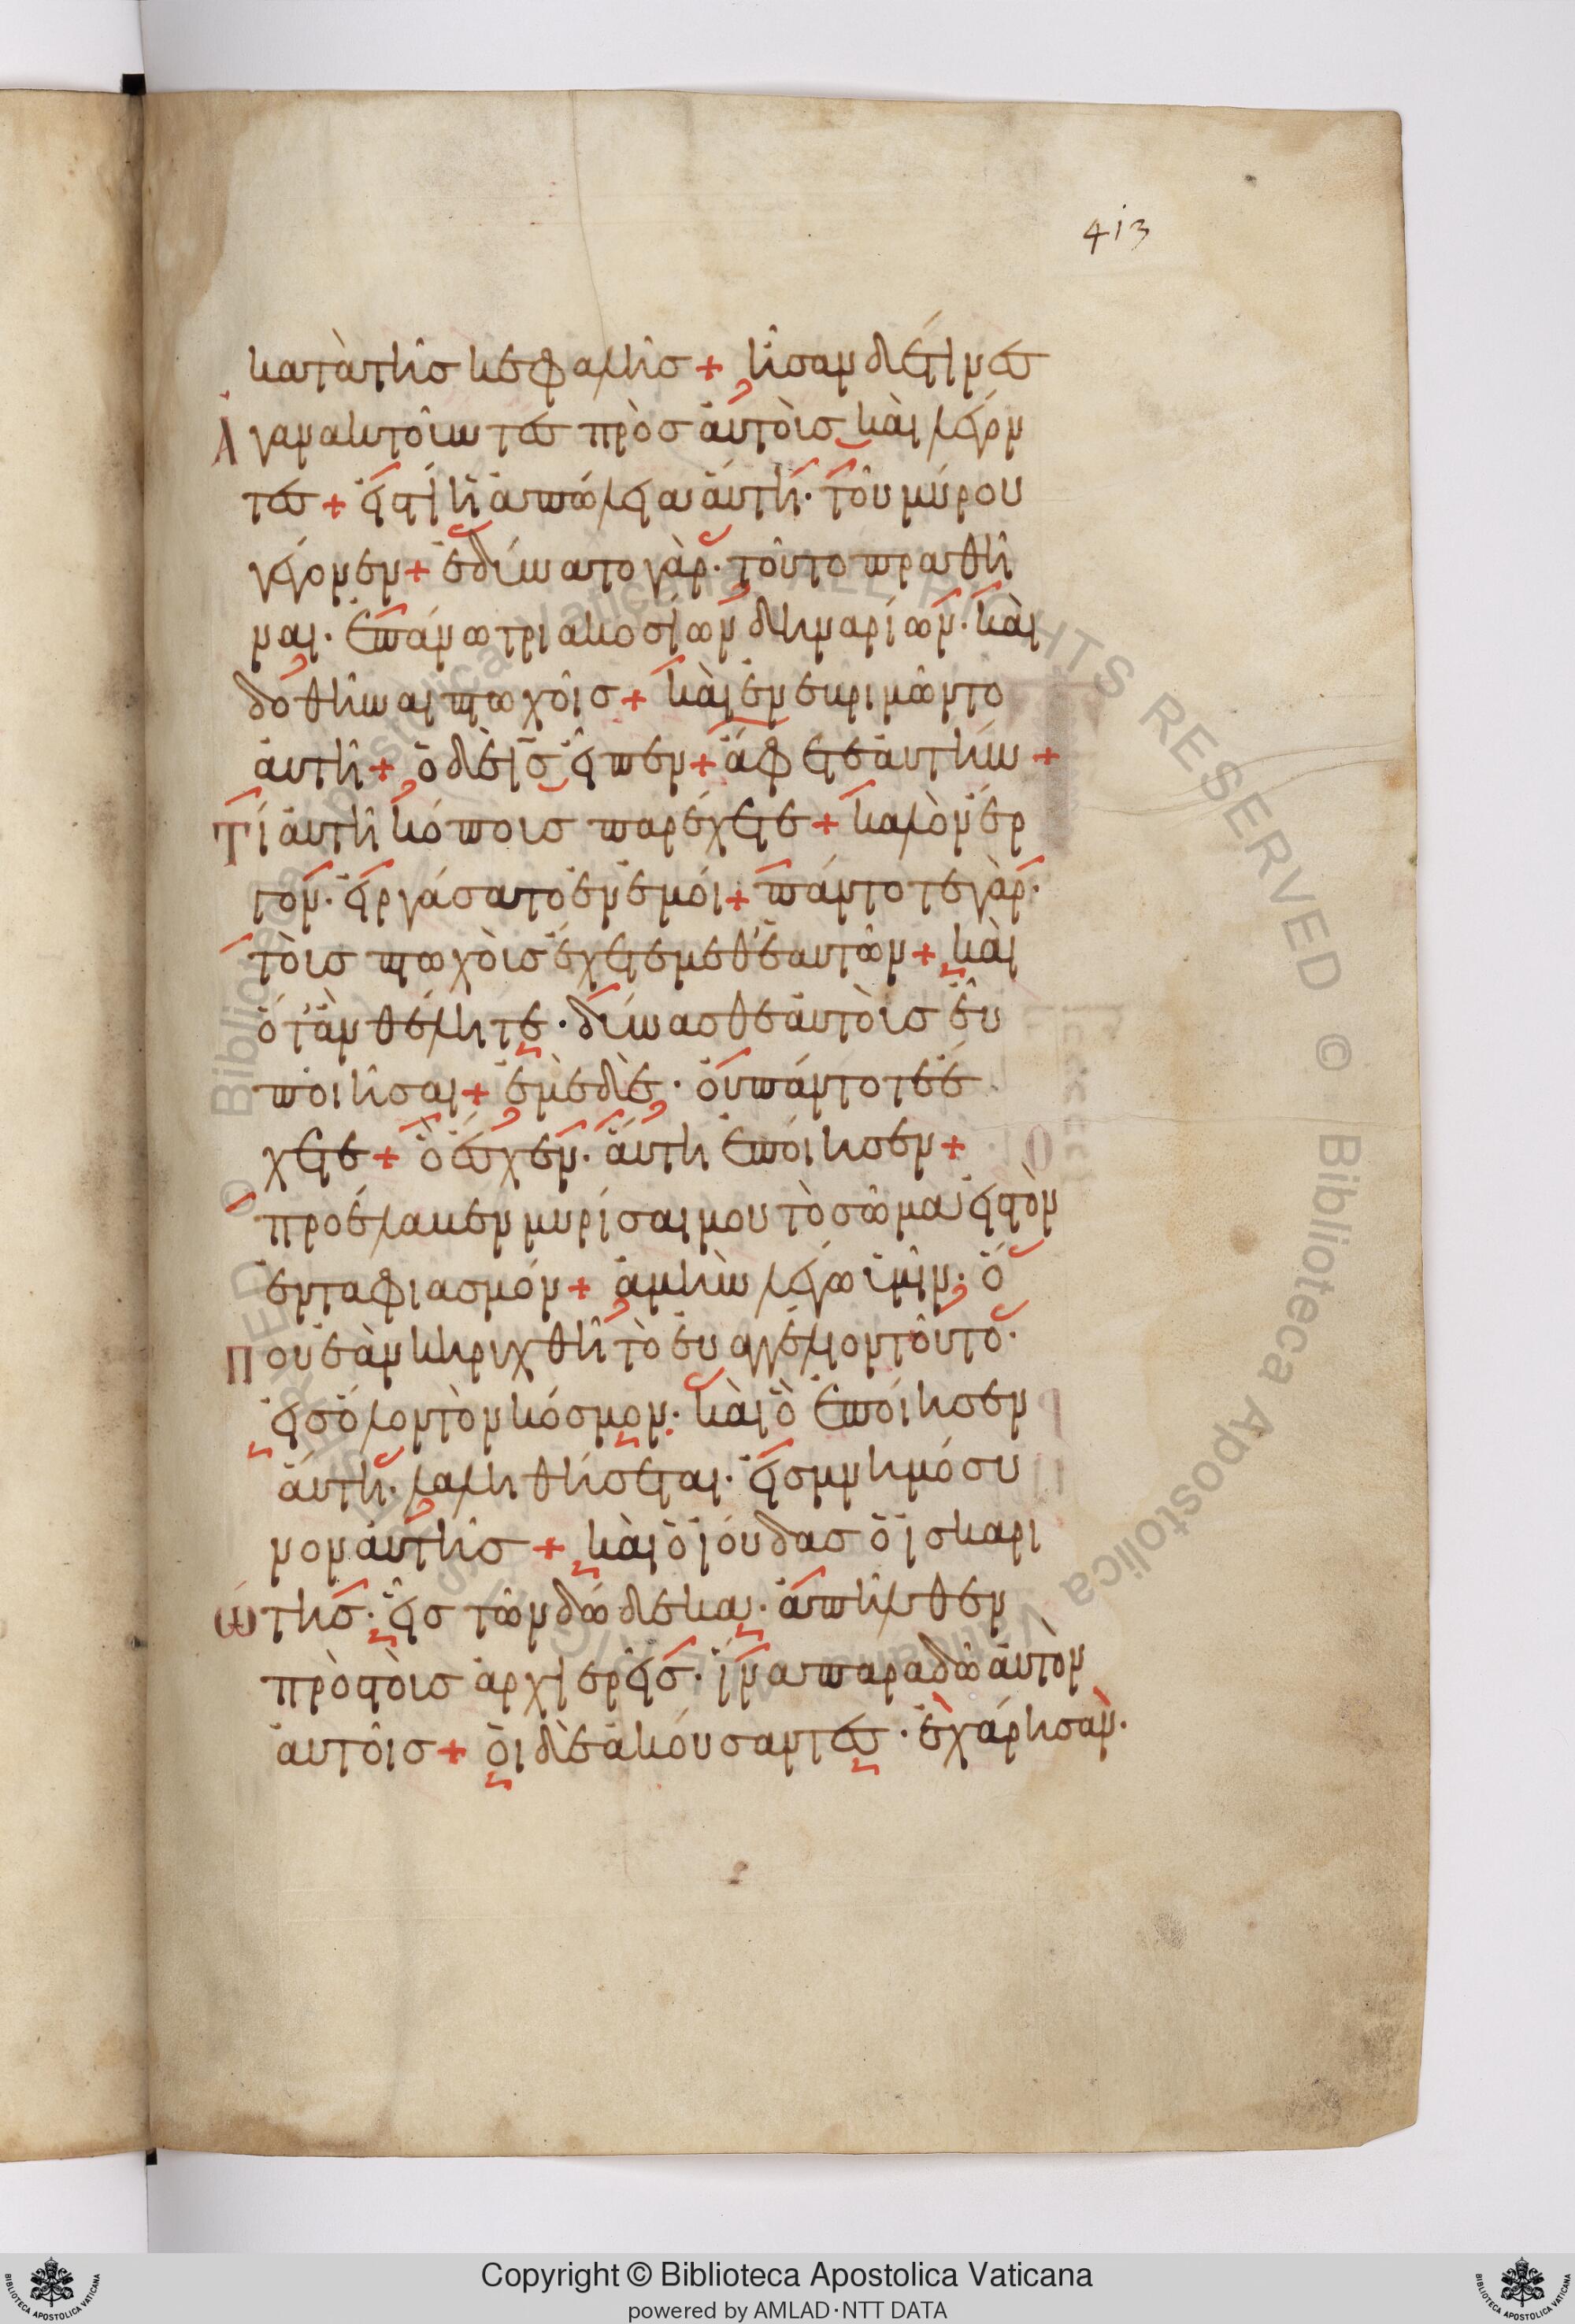 413
κατὰ τῆς κεφαλῆς + ἦσαν δέ τινες
ἀγανακτοῦντες πρὸς αὐτοὺς καὶ λέγον
τες + εἰς τί ἡ ἀπώλεια αὕτη · τοῦ μύρου
γέγονεν + ἐδύνατο γὰρ · τοῦτο πραθῆ
ναι · ἐπάνω τριακοσίων δηναρίων · καὶ
δοθῆναι πτωχοῖς + καὶ ἐνεβριμῶντο
αὐτῆ + ὁ δὲ ἰς εἶπεν + ἄφετε αὐτὴν +
τί αὐτῆ κόπους παρέχετε + καλὸν ἔρ
γον · εἰργάσατο ἐν ἐμοί + πάντοτε γὰρ ·
τοὺς πτωχοὺς ἔχετε μεθ' ἑαυτῶν + καὶ
ὅτ' ἂν θέλητε · δύνασθε αὐτοὺς εὖ
ποιῆσαι + ἐμὲ δὲ · οὐ πάντοτε ἔ
χετε + ὃ ἔσχεν · αὕτη ἐποίησεν +
προέλαβεν μυρίσαι μου τὸ σῶμα εἰς τὸν
ἐνταφιασμόν + ἀμὴν λέγω ὑμῖν · ὅ
που ἐὰν κηρυχθῆ τὸ εὐαγγέλιον τοῦτο ·
εἰς ὅλον τὸν κόσμον · καὶ ὃ ἐποίησεν
αὕτη · λαληθήσεται · εἰς μνημόσυ
νον αὐτῆς + καὶ ὁ ἰούδας ὁ ἰσκαρι
ώτης · εἷς τῶν δώδεκα · ἀπῆλθεν
πρὸς τοὺς ἀρχιερεῖς · ἵνα παραδῶ αὐτὸν
αὐτοῖς + οἱ δὲ ἀκούσαντες · ἐχάρησαν ·
© Biblioteca Apostolica Vaticana ALL RIGHTS RESERVED © Biblioteca Apostolica Vaticana ALL RIGHTS RESERVED
Copyright © Biblioteca Apostolica Vaticana
powered by AMLAD·NTT DATA
BIBLIOTECA APOSTOLICA VATICANA
BIBLIOTECA APOSTOLICA VATICANA